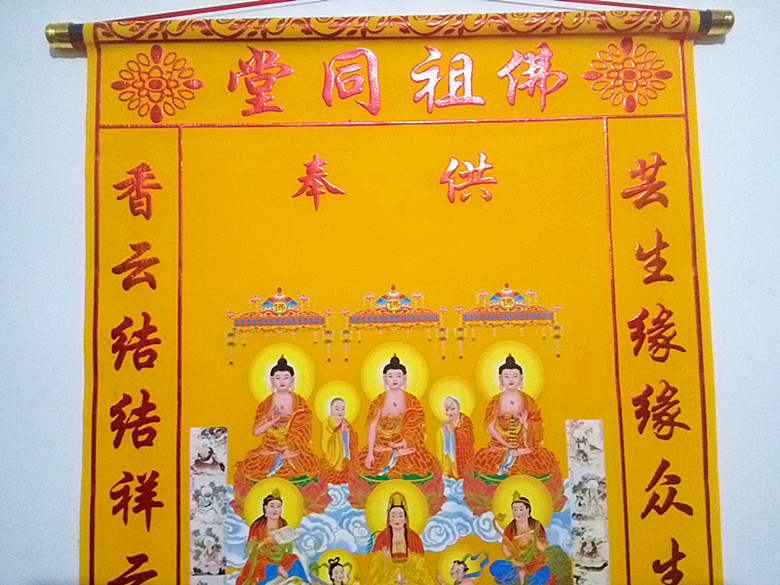 佛祖同堂
供奉
芸生缘缘众生
香云结结祥云
佛
佛
佛